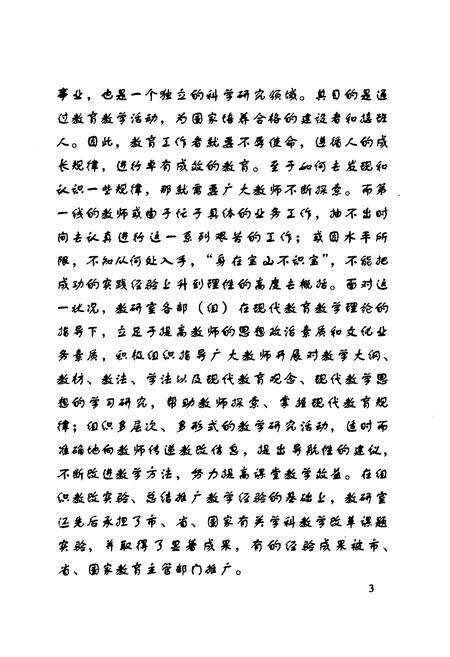 事业，也是一个独立的科学研究领域。其目的是通
过教育教学活动，为国家培养合格的建设者和接班
人。因此，教育工作者就要不辱使命，遵循人的成
长规律，进行卓有成效的教育。至于如何去发现和
认识一些规律，那就需要广大教师不断探索。而第
一线的教师或由于忙于具体的业务工作，抽不出时
间去认真进行这一系列艰苦的工作；或因水平所
限，不知从何处入手，“身在宝山不识宝”，不能把
成功的实践经验上升到理性的高度去概括。面对这
一状况，教研室各部（组）在现代教育教学理论的
指导下，立足于提高教师的思想政治素质和文化业
务素质，积极组织指导广大教师开展对教学大纲、
教材、教法、学法以及现代教育观念、现代教学思
想的学习研究，帮助教师探索、掌握现代教育规
律；组织多层次、多形式的教学研究活动，适时而
准确地向教师传递教改信息，提出导航性的建议，
不断改进教学方法，努力提高课堂教学效益。在组
织教改实验、总结推广教学经验的基础上，教研室
还先后承担了市、省、国家有关学科教学改革课题
实验，并取得了显著成果，有的经验成果被市、
省、国家教育主管部门推广。
3